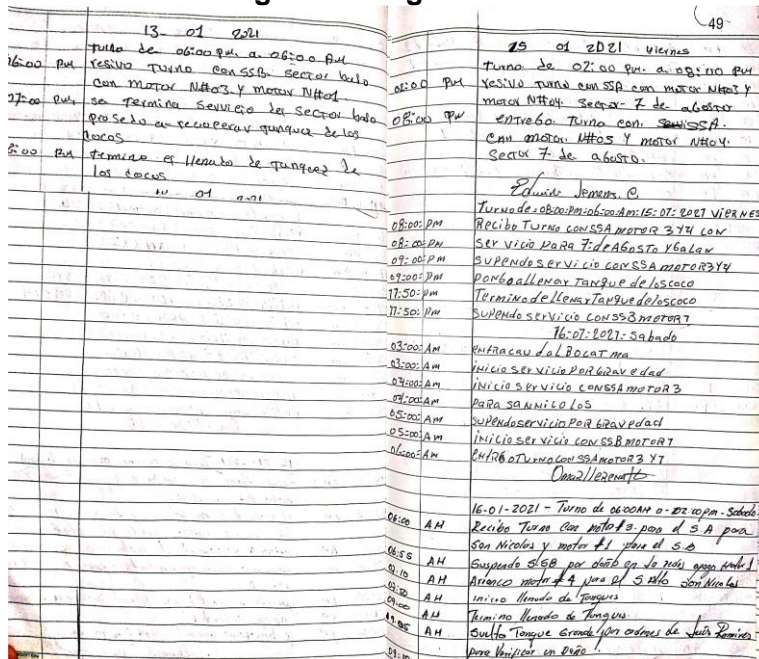 13- 01 2021
turno de 06:00 PM. a. 06:00 AM
06:00 PM resivo Turno con SSB. sector bajo
con motor N#03 y motor N#01
07:00 PM, se Termina Servicio del Sector bajo
prosedo a recuperar tanque de los
cocos
PM termino el llenado de Tanquez de
los cocos
01 2021
49
15 01 2021 viernes
turno de 02:00 PM. a. 08:00 PM
02:00 PM resivo turno con SSA con motor N#03 y
motor N#04. Sector- 7 de agosto
08:00 PM entrego Turno con SSA.
Con motor. N#03 y motor N#04.
Sector 7 de agosto.
Turno de: 08:00:PM:06:00:Am:15:07:2021 VIERNES
08:00:PM Recibo Turno con SSA motor 3Y4 con
08:00:PM servicio para 7:deAGosto Y Galan
09:00:PM supendo servicio con SSA motor3Y4
09:00:PM Pongo allenar Tanque de loscoco
11:50:pm Termino de llenar Tanque de loscoco
11:50:pm supendo servicio con SSB motor1
16:01:2021:Sabado
03:00:Am entra
03:00:Am inicio servicio por Gravedad
04:00:Am inicio servicio con SSA motor 3
04:00:Am para sannicolos
05:00:Am supendo servicio por Gravedad
05:00:Am inicio servicio con SSB motor1
06:00:Am Entrego Turno con SSA motor3 Y1
16-01-2021 - Turno de 06:00AM a - 02:00pm - Sabado
06:00 AM Recibo Turno Con motor #3 para el S.A para
San Nicolas y motor #1 para el S.B
06:55 AM Suspendo SSB por daño en la redes apago motor 1
AM Arranco motor #4 para el S Alto San Nicolas
AM inicio llenado de Tanques
AM Termino llenado de Tanques
AM Suelto Tanque Grande por ordenes de Luis Ramires
para Verificar un Daño